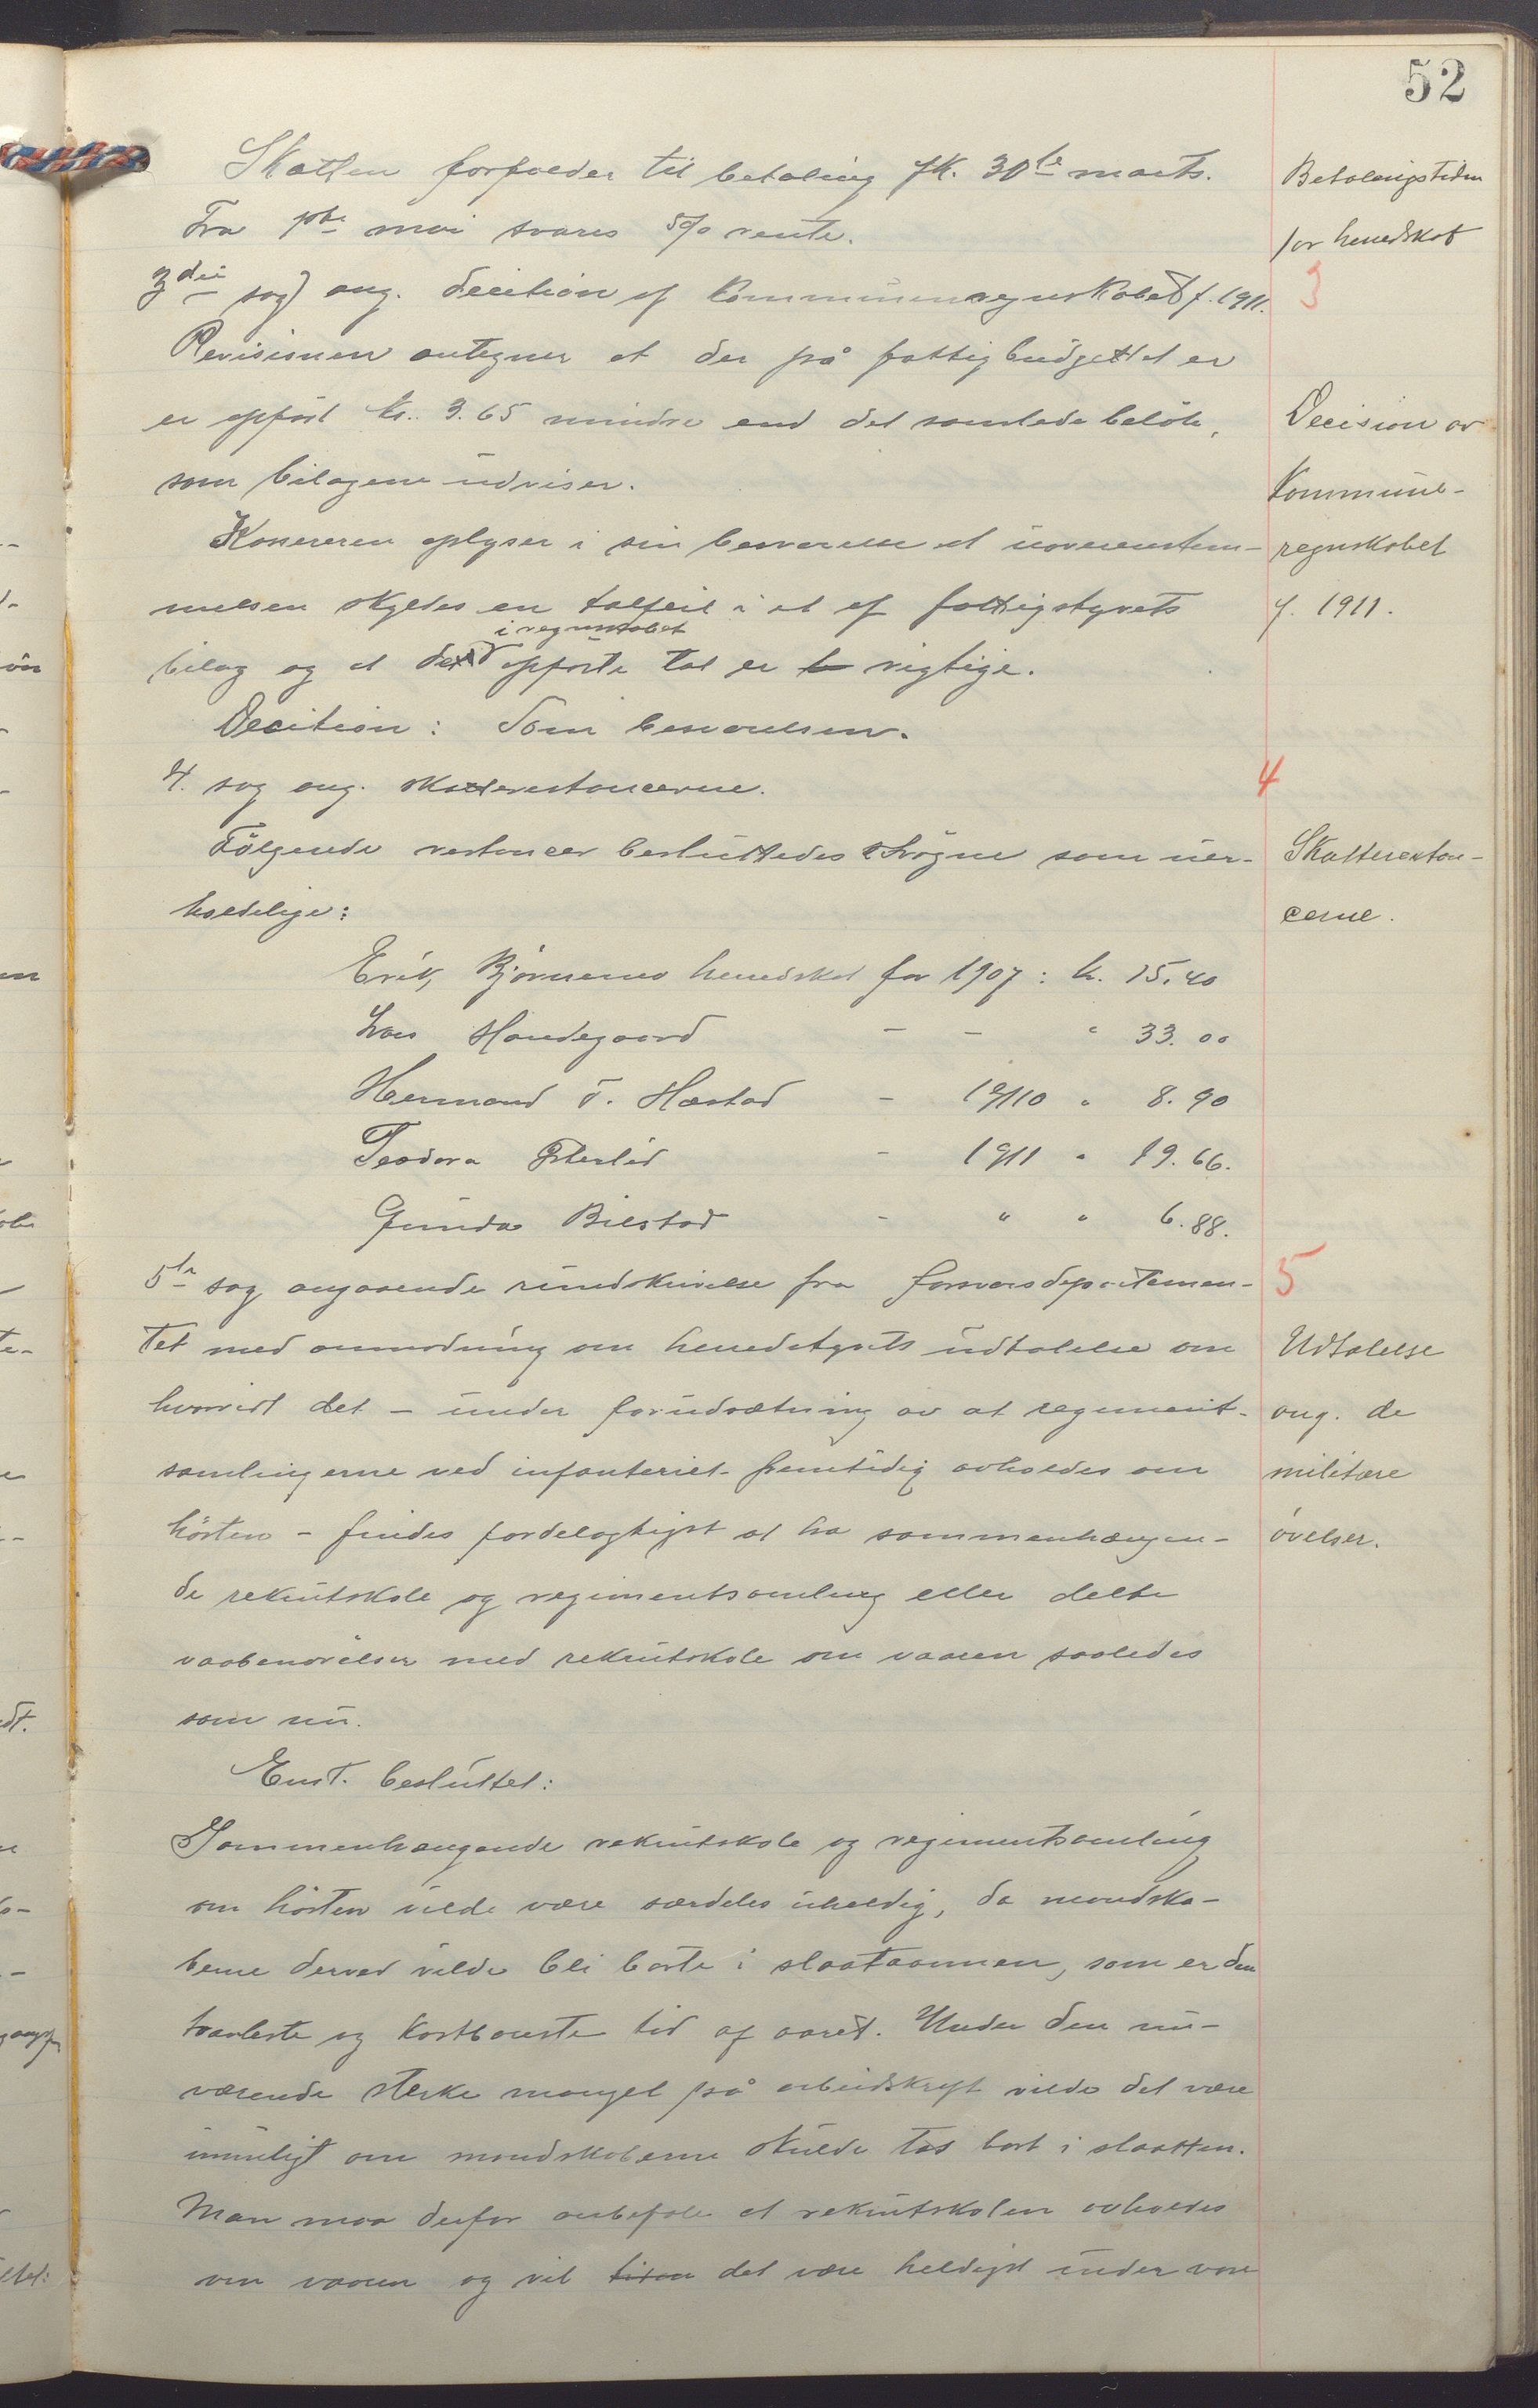 52
Skatten forfalder til betaling fk. 30te marts.
Fra 1ste mai svares 5% rente.
Betalingstiden
for herredskat
3die sag) ang. decition af kommuneregnskabet f. 1911.
3
Revisionen antegner at der på fattigbudgettet er
er opført kr. 3.65 mindre end det samlede beløb,
som bilagene udviser.
Decision av
kommune-
regnskabet
f. 1911.
Kassereren oplyser i sin besvarelse at uoverenstem-
melsen skyldes en talfeil i et af fattigstyrets
bilag og at de i regnskabet opførte tal er rigtige.
Decition: Som besvarelsen.
4. sag ang. skatterestancerne.
4
Følgende restancer besluttedes strøgne som uer-
holdelige:
Skatterestan-
cerne.
Erik Bjørnemo herredskat for 1907: kr. 15.40
Lars Handegaard - - " 33.00
Hermand T. Hæstad - 19/10 " 8.90
Teodora - 1911 " 19.66.
Gunda Bilstad - " " 6.88.
5te sag angaaende rundskrivelse fra forsvarsdepartemen-
5
tet med anmodning om herredstyrets udtalelse om
hvorvidt det - under forudsætning av at regiment-
samlingerne ved infanteriet fremtidig avholdes om
høsten - findes fordelagtigst at ha sammenhængen-
de rekrutskole og regimentsamling eller delte
vaabenøvelser med rekrutskole om vaaren saaledes
som nu.
Udtalelse
ang. de
militære
øvelser.
Enst. besluttet:
Sammenhængende rekrutskole og regimentsamling
om høsten vilde være særdeles uheldig, da mandska-
berne derved vilde bli borte i slaataannen, som er den
travleste og kostbareste tid af aaret. Under den nu-
værende sterke mangel på arbeidskraft vilde det være
umuligt om mandskaberne skulde tas bort i slaatten.
Man maa derfor anbefale at rekrutskolen avholdes
om vaaren og vil det være heldigst under vore